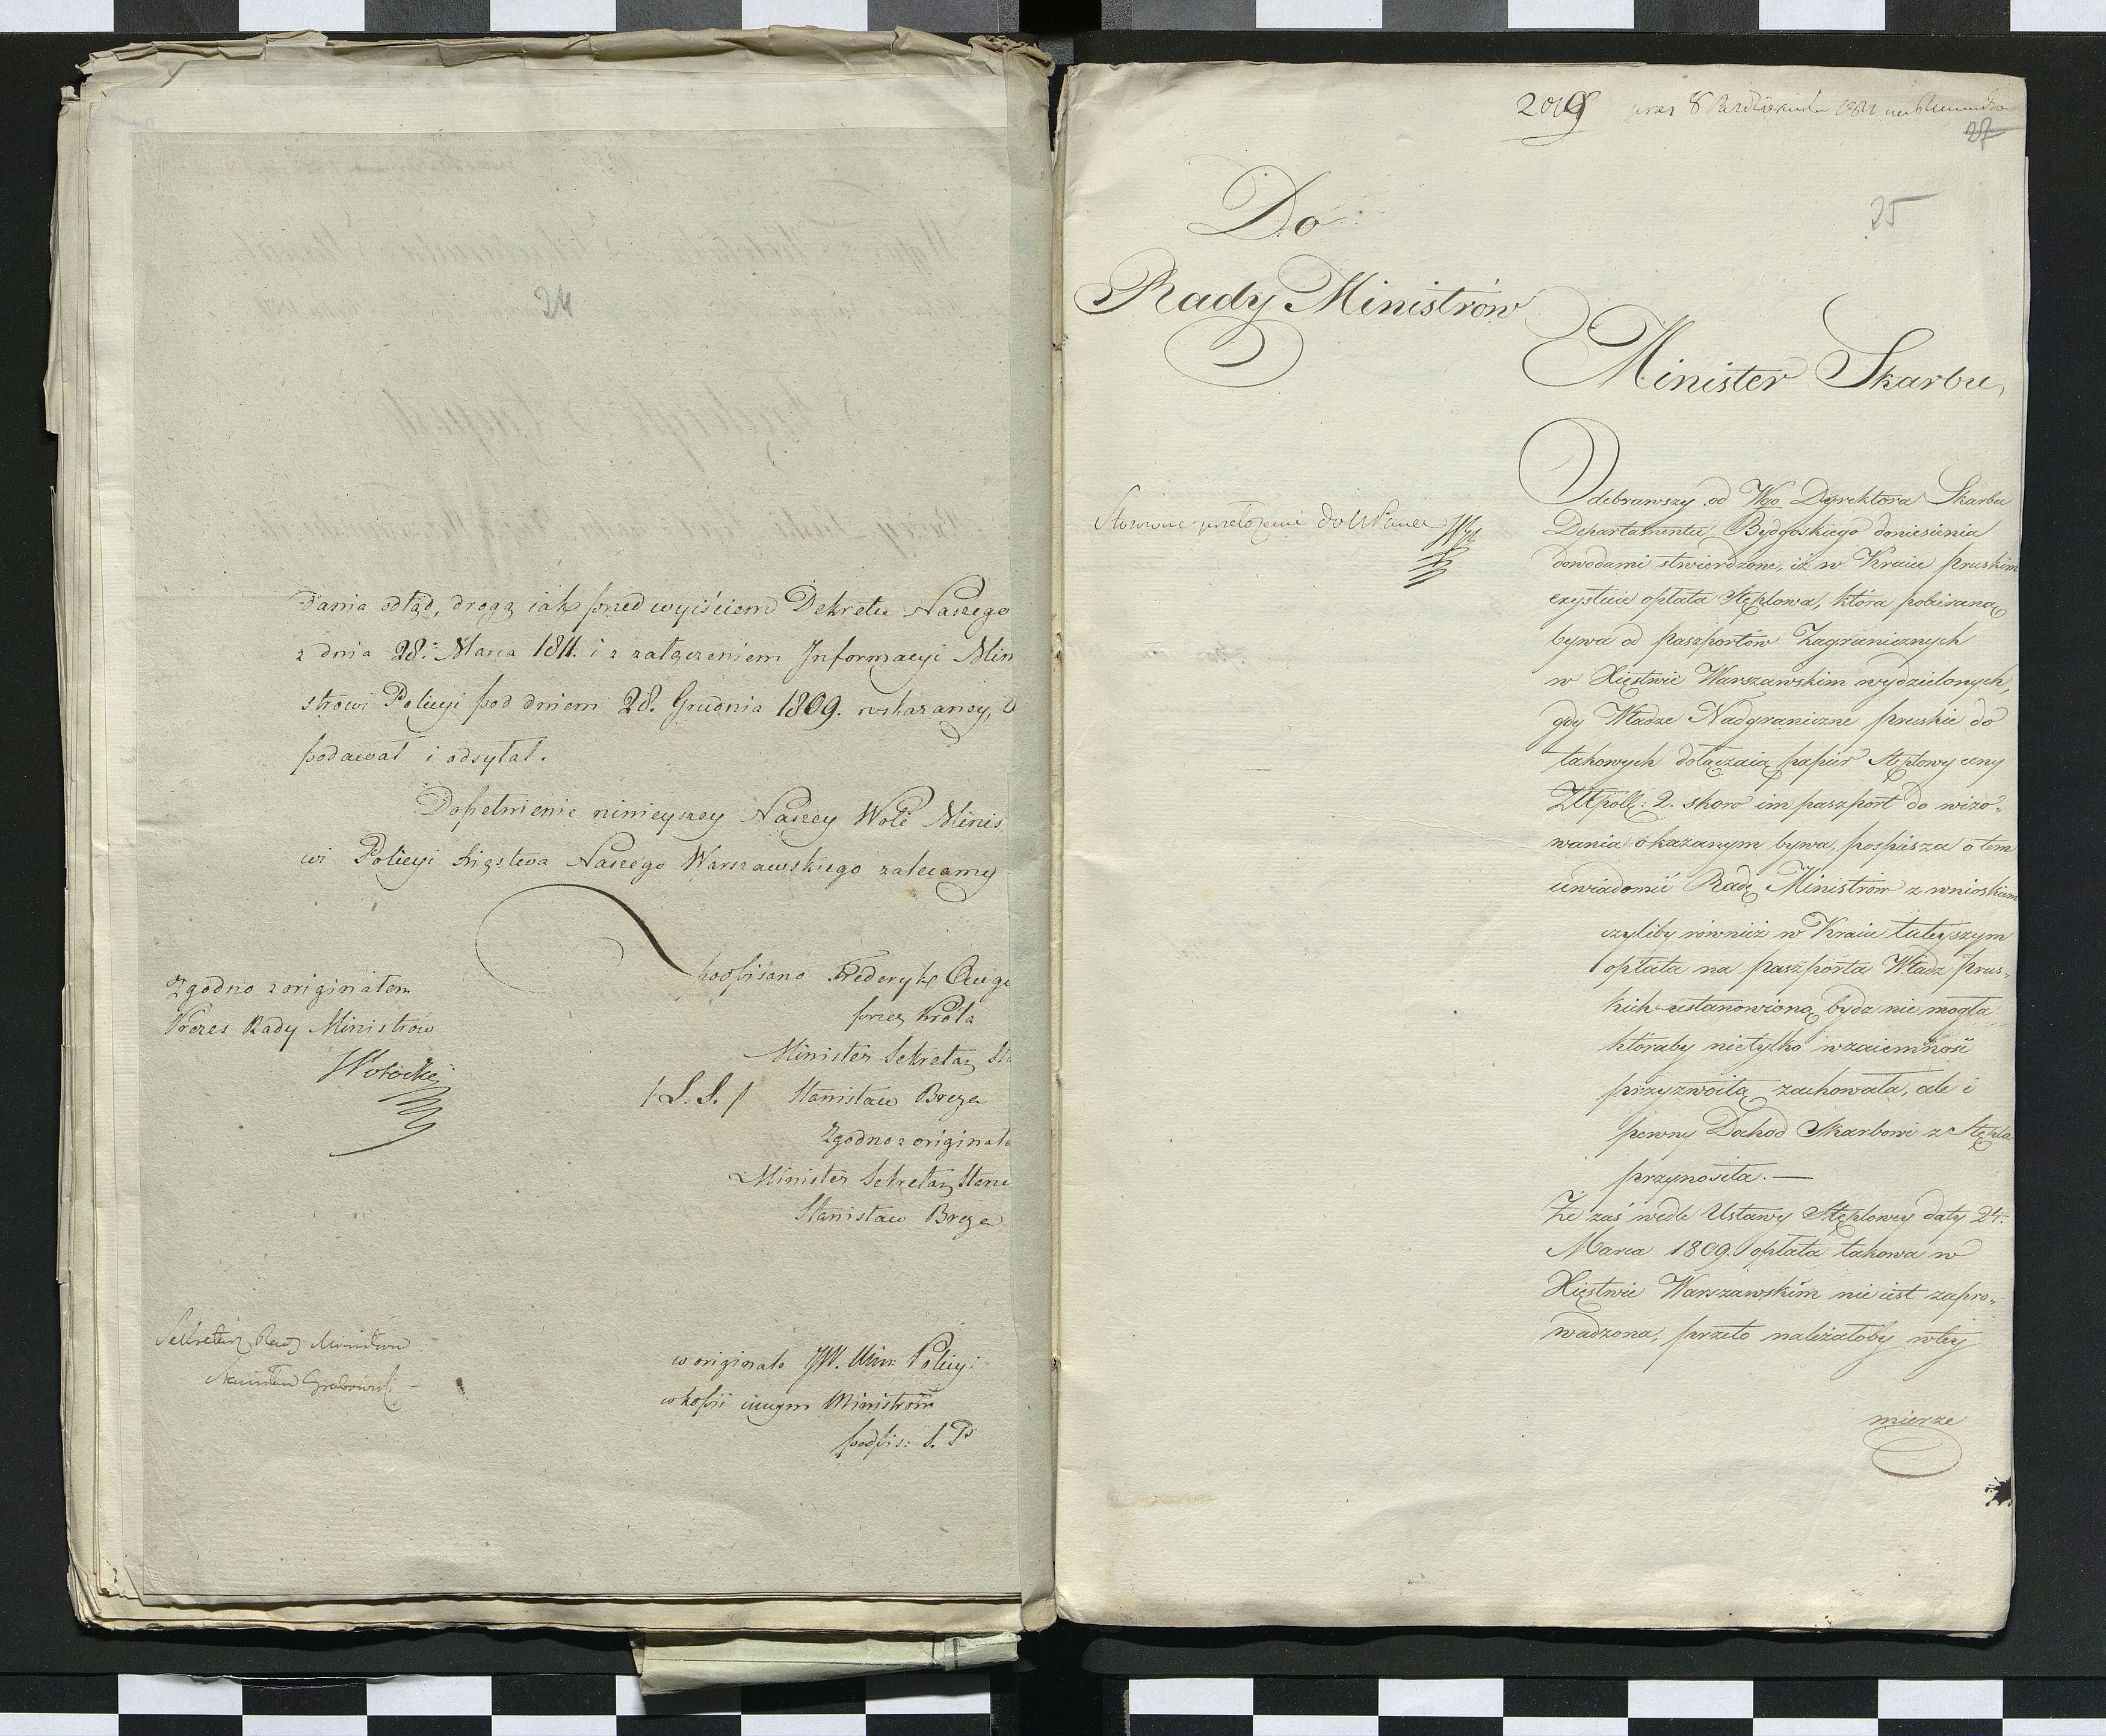 24
dania odtąd, drogą iak przed wyiściem Dekretu Naszego
z dnia 28. Marca 1811. i z załączeniem Informacyi Min
strowi Policyi pod dniem 28. Grudnia 1809. wskazaney,
podawał i odsyłał.
Dopełnienie ninieyszey Naszey Woli Minis
wi Policyi Xięstwa Naszego Warszawskiego zalecamy
podpisano Frederyk Augu
przez Króla
Minister Sekretarz St
/ L. S. / Stanisław Breza
Zgodno z originałe
Minister Sekretarz Stanu
Stanisław Breza
Zgodno z originałem
Prezes Rady Ministrów
Potocki
Sekretarz Rady Ministrów
Stanisław Grabowski
w originale JW. Min: Policyi
w kopii innym Ministróm
podpis: S. P
2019 8 Października 1811
27
25
Do
Rady Ministrów
Minister Skarbu,
Stosowne przełożenie do
Odebrawszy od Wgo Dyrektora Skarbu
Departamentu Bydgoskiego doniesienia
dowodami stwierdzone, iż w Kraiu pruskim
exystuie opłata stęplowa, która pobieraną
bywa od paszportów Zagranicznych
w Xięstwie Warszawskim wydzielonych,
gdy Władze Nadgraniczne pruskie do
takowych dołączaią papier stęplowy ceny
Złł poll: 2. skoro im paszport do wizo-
wania okazanym bywa, pospiesza o tem
uwiadomić Radę Ministrów z wnioskiem
czyliby również w Kraiu tuteyszym
opłata na paszporta Władz prus-
kich ustanowioną bydź nie mogła
któraby nietylko wzaiemność
przyzwoitą zachowała, ale i
pewny Dohod Skarbowi z stępla
przynosiła. —
Że zaś wedle Ustawy Stęplowey daty 24.
Marca 1809. opłata takowa w
Xięstwie Warszawskim nie iest zapro-
wadzona, przeto należałoby w tey
mierze